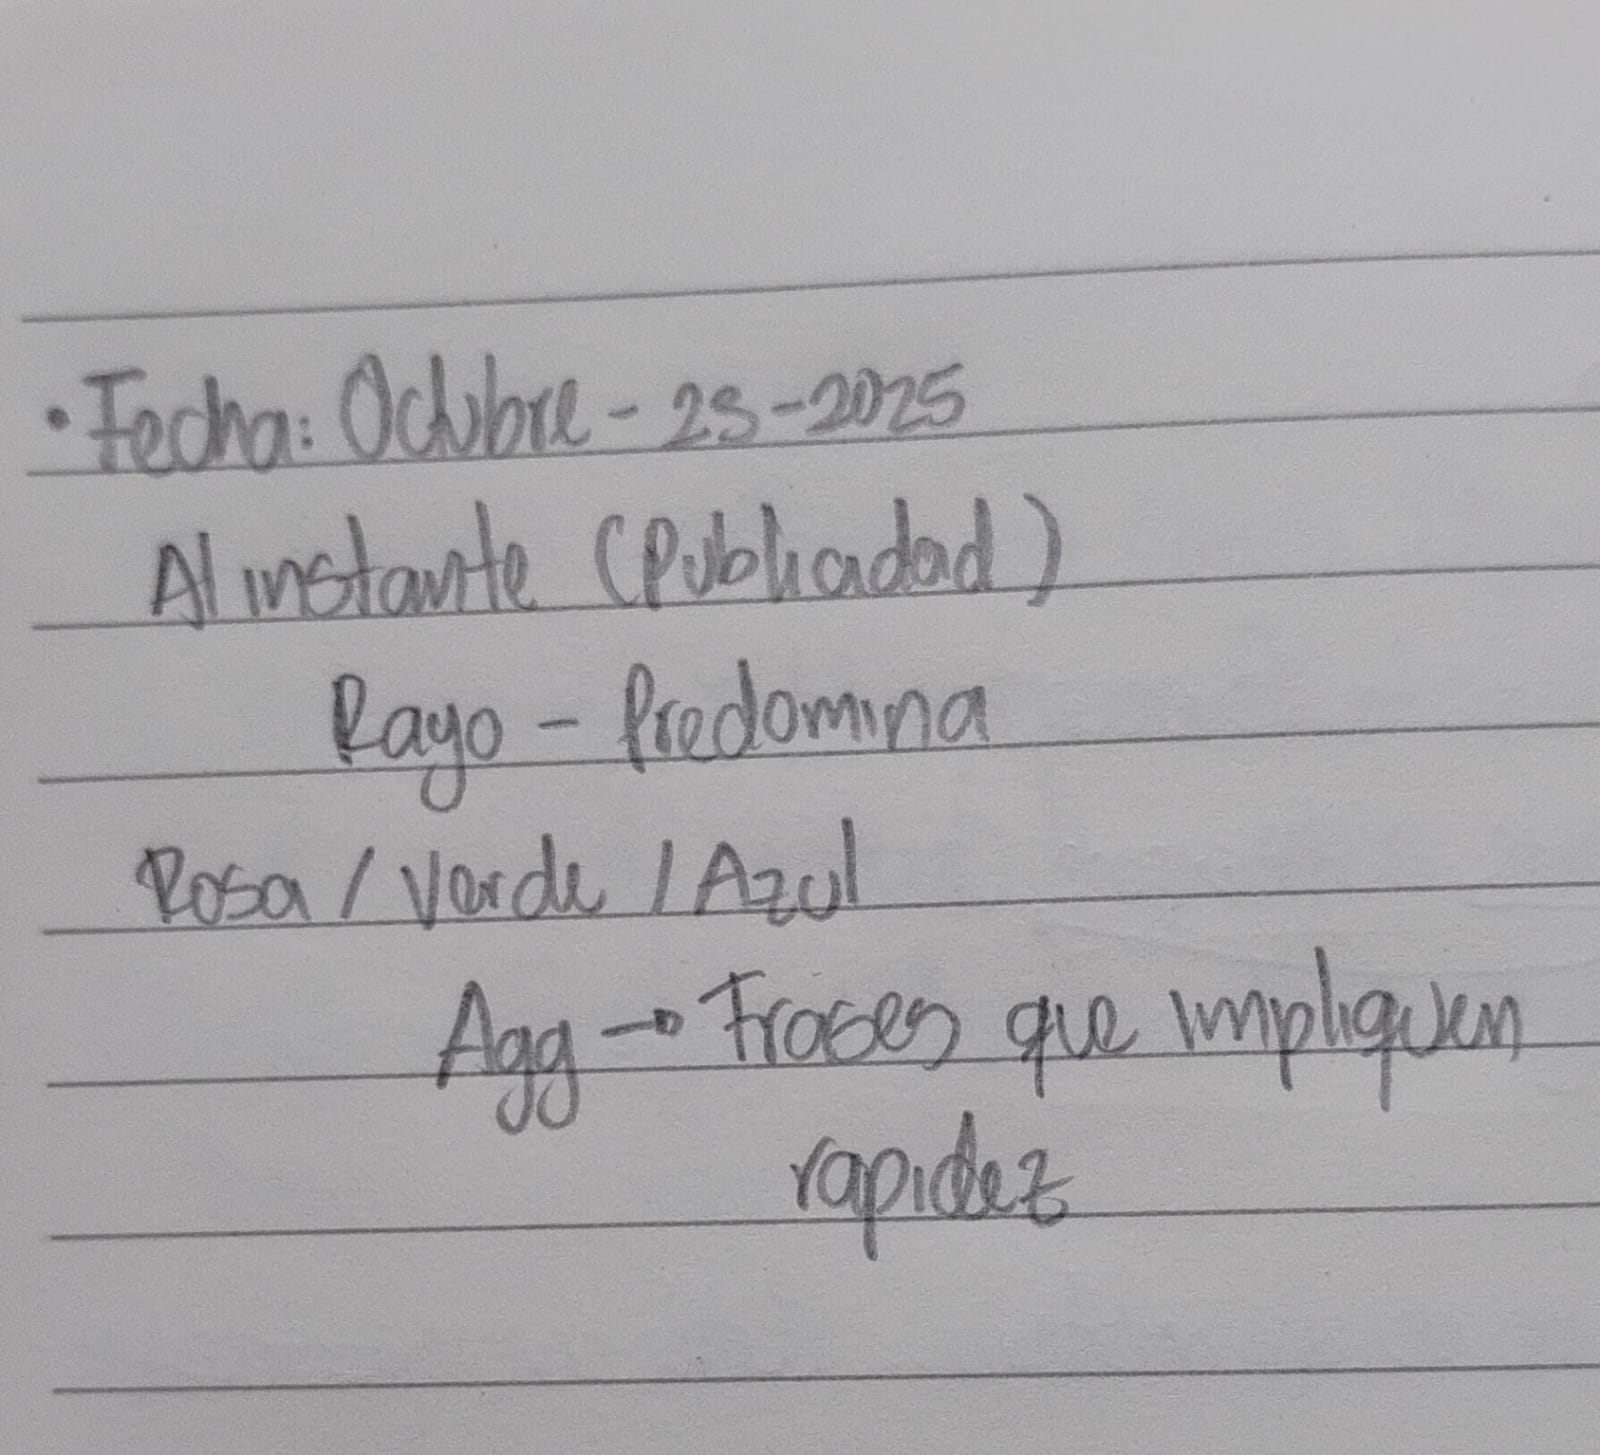 • Fecha: Octubre - 23-2025
Al instante (Publicidad)
Rayo - Predomina
Rosa / Verde / Azul
Agg → Frases que impliquen
rapidez